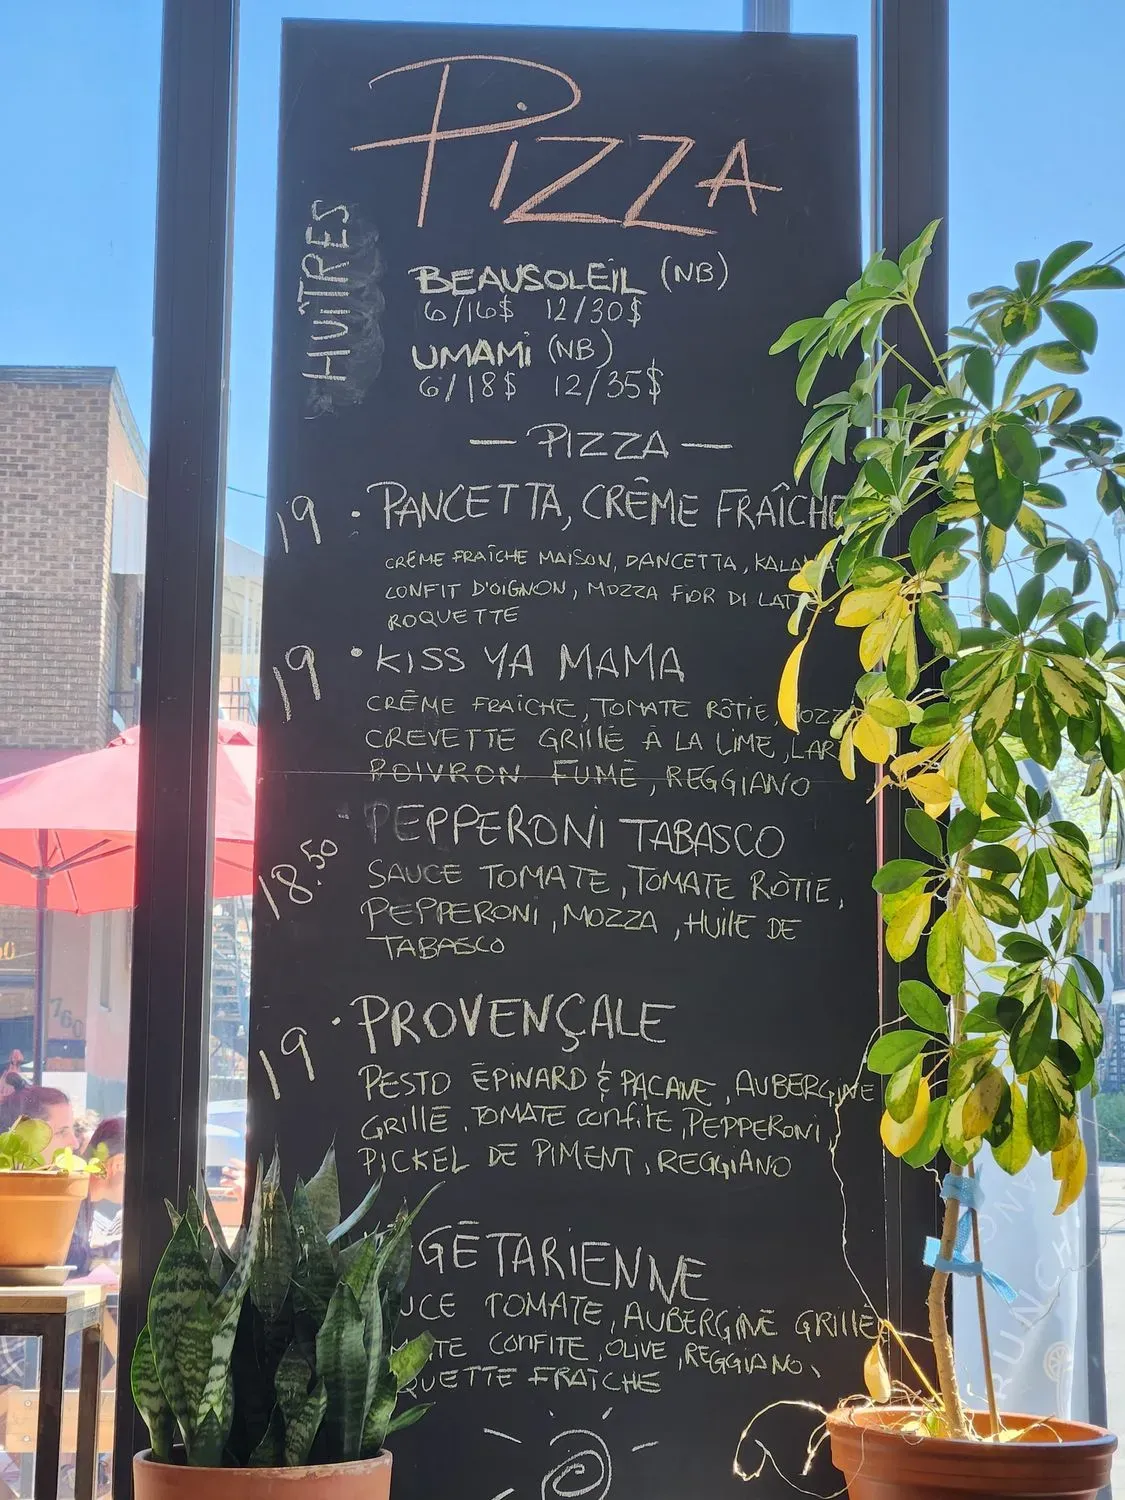 PIZZA
HUÎTRES
BEAUSOLEIL (NB)
6/16$ 12/30$
UMAMI (NB)
6/18$ 12/35$
— PIZZA —
19 • PANCETTA, CRÊME FRAÎCHE
CRÈME FRAÎCHE MAISON, PANCETTA,
CONFIT D'OIGNON, MOZZA FIOR DI LAT
ROQUETTE
19 • KISS YA MAMA
CRÈME FRAÎCHE, TOMATE RÔTIE, MOZZA
CREVETTE GRILLÉ À LA LIME, LAR
POIVRON FUMÉ, REGGIANO
18.50 • PEPPERONI TABASCO
SAUCE TOMATE, TOMATE RÔTIE,
PEPPERONI, MOZZA, HUILE DE
TABASCO
19 • PROVENÇALE
PESTO ÉPINARD & PACANE, AUBERGINE
GRILLÉ, TOMATE CONFITE, PEPPERONI,
PICKEL DE PIMENT, REGGIANO
GÉTARIENNE
UCE TOMATE, AUBERGINE GRILLÉ
ATE CONFITE, OLIVE, REGGIANO,
QUETTE FRAÎCHE
760